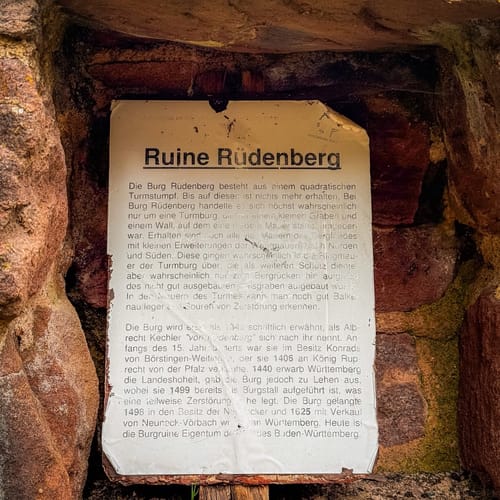 Ruine Rüdenberg
Die Burg Rüdenberg besteht aus einem quadratischen
Turmstumpf. Bis auf dieser ist nichts mehr erhalten. Bei
Burg Rüdenberg handelte es sich höchst wahrscheinlich
nur um eine Turmburg, einem kleinen Graben und
einem Wall, auf dem eine Mauer
war. Erhalten sind noch alle Mauern des Bergfriedes
mit kleinen Erweiterungen der Ringmauer nach Norden
und Süden. Diese gingen wahrscheinlich in die Ringmau-
er der Turmburg über, die als weiteren Schutz diente
aber wahrscheinlich nur zum Bergrücken hin aufgrund
des nicht gut ausgebauten Halsgraben aufgebaut wurde.
In den Mauern des Turmes kann man noch gut Balke
und Spuren von Zerstörung erkennen.
Die Burg wird erstmals schriftlich erwähnt, als Alb-
recht Kechler "von Rüdenberg" sich nach ihr nennt. An-
fangs des 15. Jahrhunderts war sie im Besitz Konrads
von Börstingen-Weitingen, der sie 1405 an König Rup-
recht von der Pfalz 1440 erwarb Württemberg
die Landeshoheit, gab die Burg jedoch zu Lehen aus,
wobei sie 1499 bereits als Burgstall aufgeführt ist, was
eine teilweise Zerstörung nahe legt. Die Burg gelangte
1498 in den Besitz der und 1625 mit Verkauf
von Neuneck-Vörbach an Württemberg. Heute ist
die Burgruine Eigentum des Landes Baden-Württemberg.